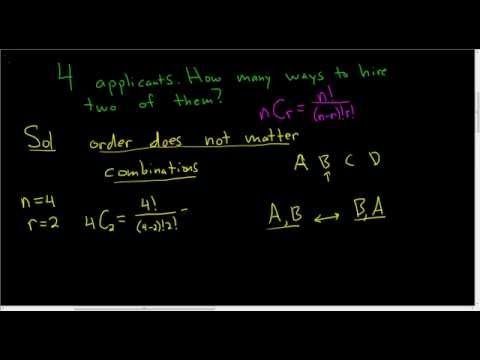 4 applicants. How many ways to hire
two of them?
nCr = n!/(n-r)!r!
Sol order does not matter
combinations
A B C D
↑
n=4
r=2
4C2 = 4!/(4-2)!2! =
A,B ↔ B,A